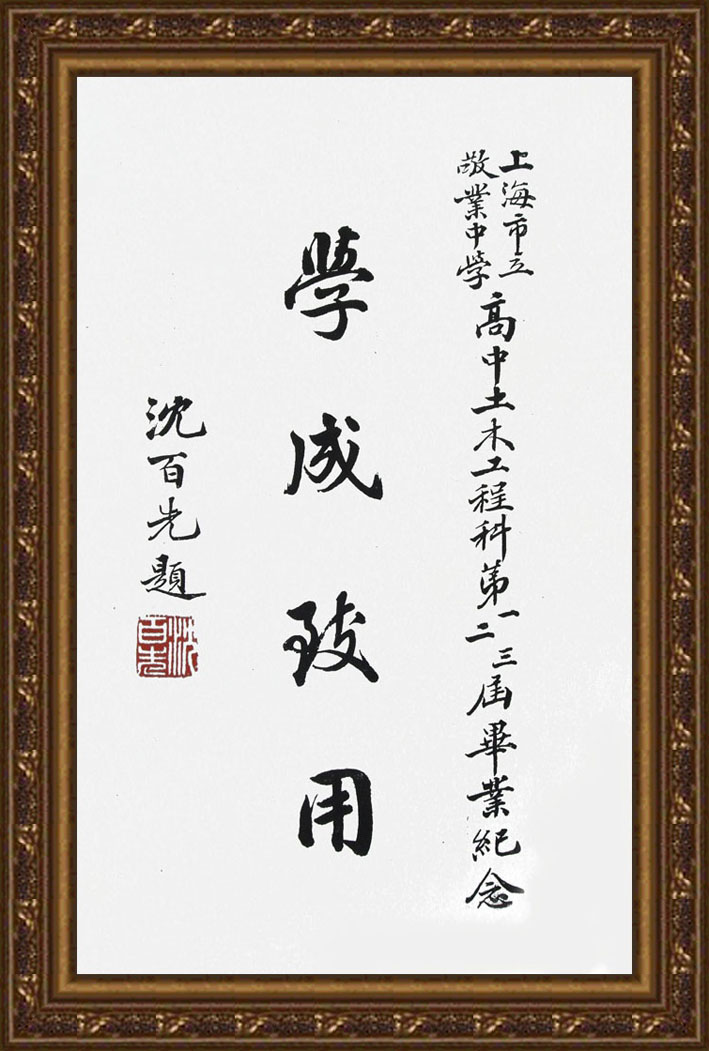 上海市立
敬業中學
高中土木工程科第一二三屆畢業紀念
學成致用
沈百先題
沈百先